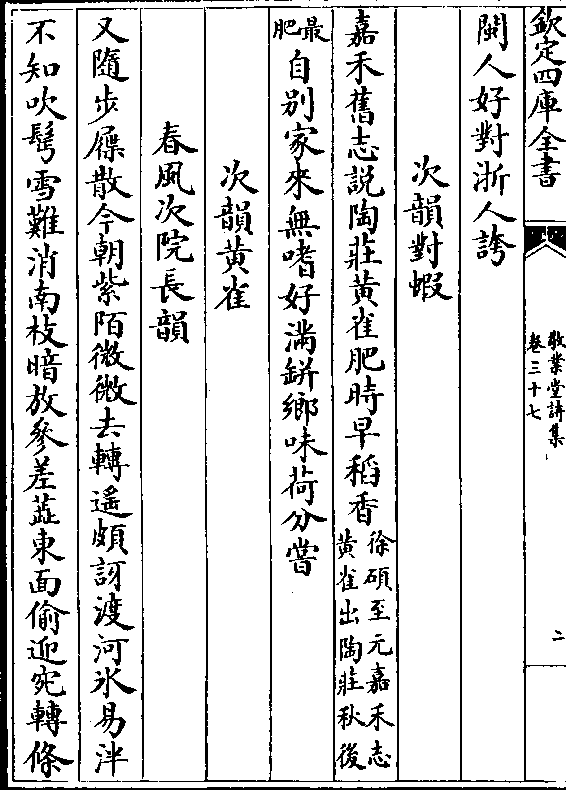 欽定四庫全書
敬業堂詩集
卷三十七
二
閩人好對浙人誇
次韻對蝦
嘉禾舊志說陶莊黃雀肥時早稻香徐碩至元嘉禾志黃雀出陶莊秋後
最肥自别家來無嗜好滿缾鄉味荷分嘗
次韻黃雀
春風次院長韻
又隨步屧散今朝紫陌微微去轉遙頗訝渡河氷易泮
不知吹鬢雪難消南枝暗放參差蘂東面偷迎宛轉條